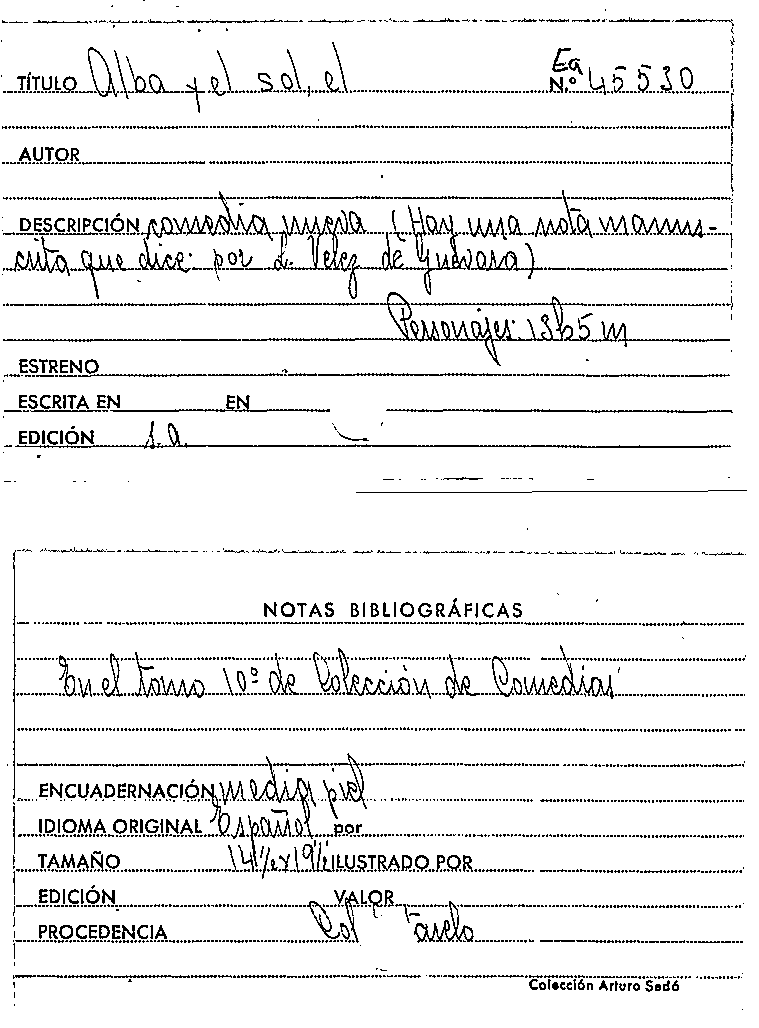 TÍTULO Alba y el sol, el Ea N.º 45530
AUTOR
DESCRIPCIÓN comedia nueva (Hay una nota manus-
crita que dice: por L. Velez de Guevara)
Personajes: 13h 5m
ESTRENO
ESCRITA EN EN
EDICIÓN s.a.
NOTAS BIBLIOGRÁFICAS
En el tomo 10º de Colección de Comedias
ENCUADERNACIÓN media piel
IDIOMA ORIGINAL Español por
TAMAÑO ILUSTRADO POR
EDICIÓN VALOR
PROCEDENCIA Col
Colección Arturo Sedó